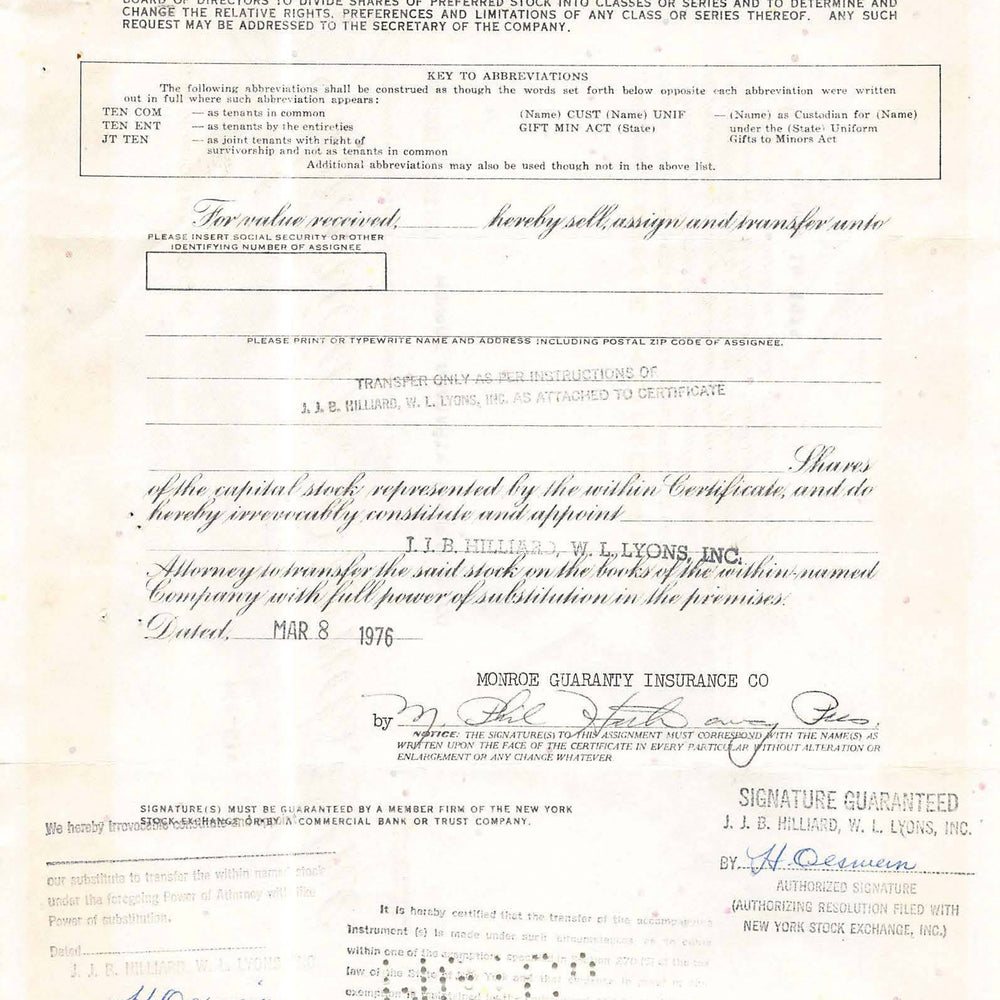 BOARD OF DIRECTORS TO DIVIDE SHARES OF PREFERRED STOCK INTO CLASSES OR SERIES AND TO DETERMINE AND
CHANGE THE RELATIVE RIGHTS, PREFERENCES AND LIMITATIONS OF ANY CLASS OR SERIES THEREOF. ANY SUCH
REQUEST MAY BE ADDRESSED TO THE SECRETARY OF THE COMPANY.
KEY TO ABBREVIATIONS
The following abbreviations shall be construed as though the words set forth below opposite each abbreviation were written
out in full where such abbreviation appears:
TEN COM — as tenants in common (Name) CUST (Name) UNIF — (Name) as Custodian for (Name)
TEN ENT — as tenants by the entireties GIFT MIN ACT (State) under the (State) Uniform
JT TEN — as joint tenants with right of Gifts to Minors Act
survivorship and not as tenants in common
Additional abbreviations may also be used though not in the above list.
For value received, hereby sell, assign and transfer unto
PLEASE INSERT SOCIAL SECURITY OR OTHER
IDENTIFYING NUMBER OF ASSIGNEE
PLEASE PRINT OR TYPEWRITE NAME AND ADDRESS INCLUDING POSTAL ZIP CODE OF ASSIGNEE.
TRANSFER ONLY AS PER INSTRUCTIONS OF
J. J. B. HILLIARD, W. L. LYONS, INC. AS ATTACHED TO CERTIFICATE
Shares
of the capital stock represented by the within Certificate, and do
hereby irrevocably constitute and appoint
J. J. B. HILLIARD, W. L. LYONS, INC.
Attorney to transfer the said stock on the books of the within-named
Company with full power of substitution in the premises.
Dated, MAR 8 1976
MONROE GUARANTY INSURANCE CO
by M. Phil Hathaway Pres.
NOTICE: THE SIGNATURE(S) TO THIS ASSIGNMENT MUST CORRESPOND WITH THE NAME(S) AS
WRITTEN UPON THE FACE OF THE CERTIFICATE IN EVERY PARTICULAR WITHOUT ALTERATION OR
ENLARGEMENT OR ANY CHANGE WHATEVER.
SIGNATURE(S) MUST BE GUARANTEED BY A MEMBER FIRM OF THE NEW YORK
STOCK EXCHANGE OR BY A COMMERCIAL BANK OR TRUST COMPANY.
SIGNATURE GUARANTEED
J. J. B. HILLIARD, W. L. LYONS, INC.
BY H. Oeswein
AUTHORIZED SIGNATURE
(AUTHORIZING RESOLUTION FILED WITH
NEW YORK STOCK EXCHANGE, INC.)
We hereby irrevocable constitute and appoint
our substitute to transfer the within named stock
under the foregoing Power of Attorney with like
Power of substitution.
Dated
J. J. B. HILLIARD, W. L. LYONS
H. Oeswein
It is hereby certified that the transfer of the
instrument (s) is made under such circumstances as to
within one of the 270 (5) of the
law of the State of New York and that